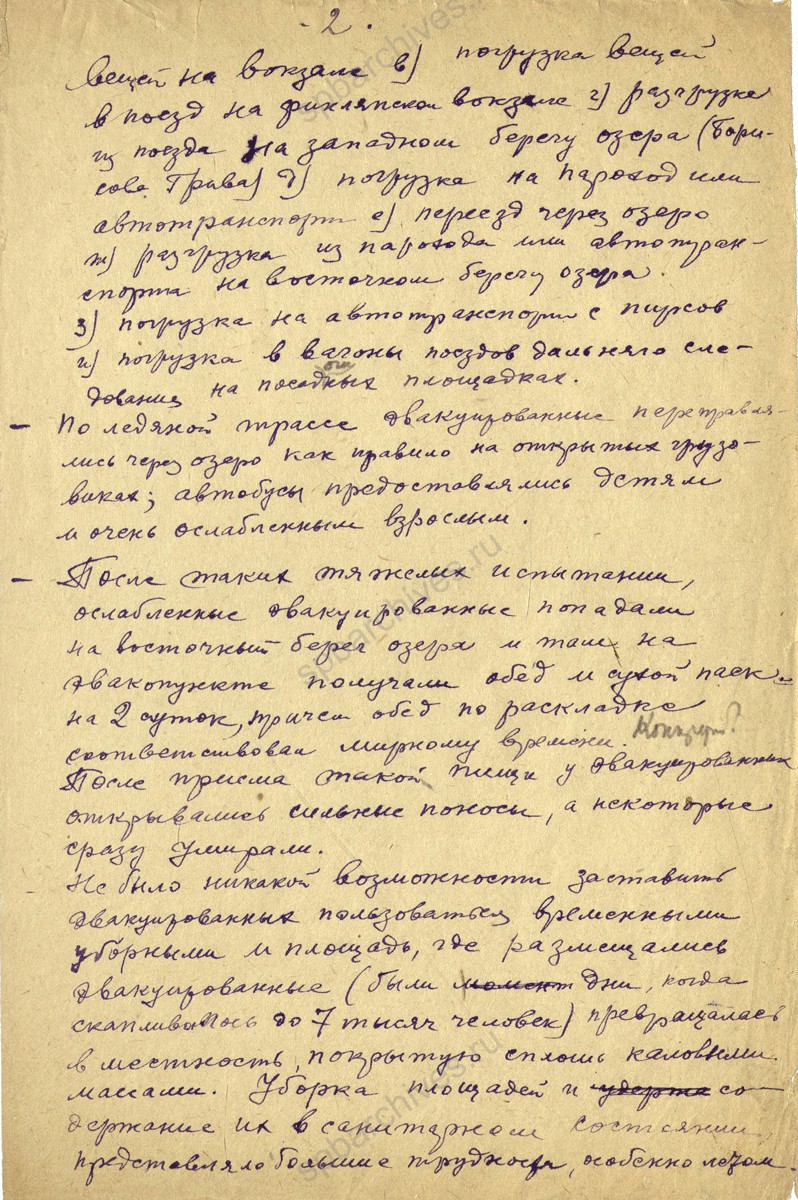 - 2 .
вещей на вокзале в) погрузка вещей
в поезд на финляпском вокзале г) разгрузка
из поезда на западном берегу озера (Бори-
сова Грива) д) погрузка на пароход или
автотранспорт е) переезд через озеро
ж) разгрузка из парохода или автотран-
спорта на восточном берегу озера.
з) погрузка на автотранспорт с пирсов
и) погрузка в вагоны поездов дальняго сле-
дования на посадочных площадках.
- По ледяной трассе эвакуированные переправля-
лись через озеро как правило на открытых грузо-
виках; автобусы предоставлялись детям
и очень ослабленным взрослым.
- После таких тяжелых испытании,
ослабленные эвакуированные попадали
на восточный берег озера и там на
эвакопункте получали обед и сухой паек
на 2 суток, причем обед по раскладке
соответствовал мирному времени.
После приема такой пищи у эвакуированных
открывались сильные поносы, а некоторые
сразу умирали.
- Не было никакой возможности заставить
эвакуированных пользоваться временными
уборными и площадь, где размещались
эвакуированные (были момент дни, когда
скапливалось до 7 тысяч человек) превращалась
в местность, покрытую сплошь каловыми
массами. Уборка площадей и со-
держание их в санитарном состоянии
представляло большие трудности, особенно летом.
spbarchives.ru
spbarchives.ru
spbarchives.ru
spbarchives.ru